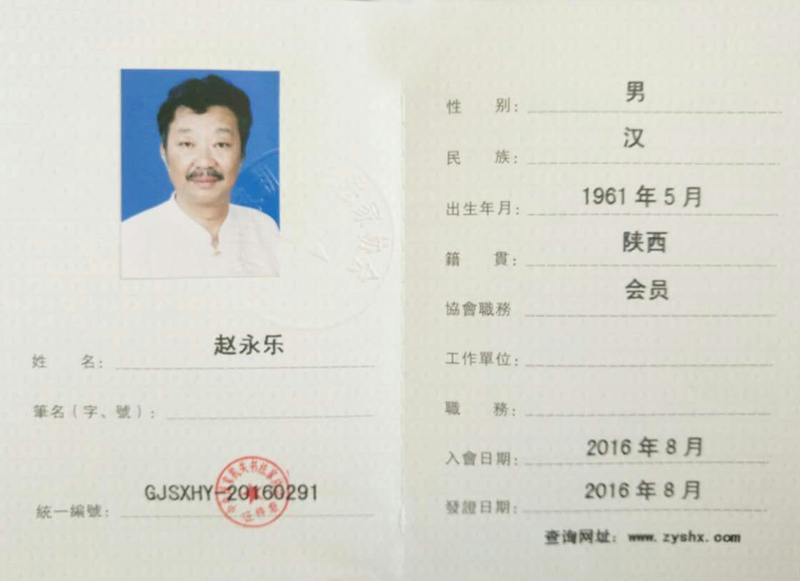 姓 名: 赵永乐
筆名(字、號):
統一編號: GJSXHY-20160291
性 别: 男
民 族: 汉
出生年月: 1961年5月
籍 貫: 陕西
協會職務 会员
工作單位:
職 務:
入會日期: 2016年8月
發證日期: 2016年8月
查询网址: www.zyshx.com